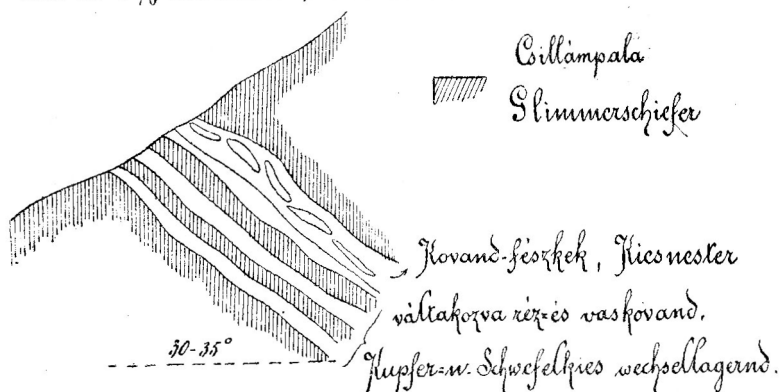 Csillámpala
Glimmerschiefer
Kovand-fészkek, Kiesnester
váltakozva réz-és vaskovand.
Kupfer-u. Schwefelkies wechsellagernd.
30-35°